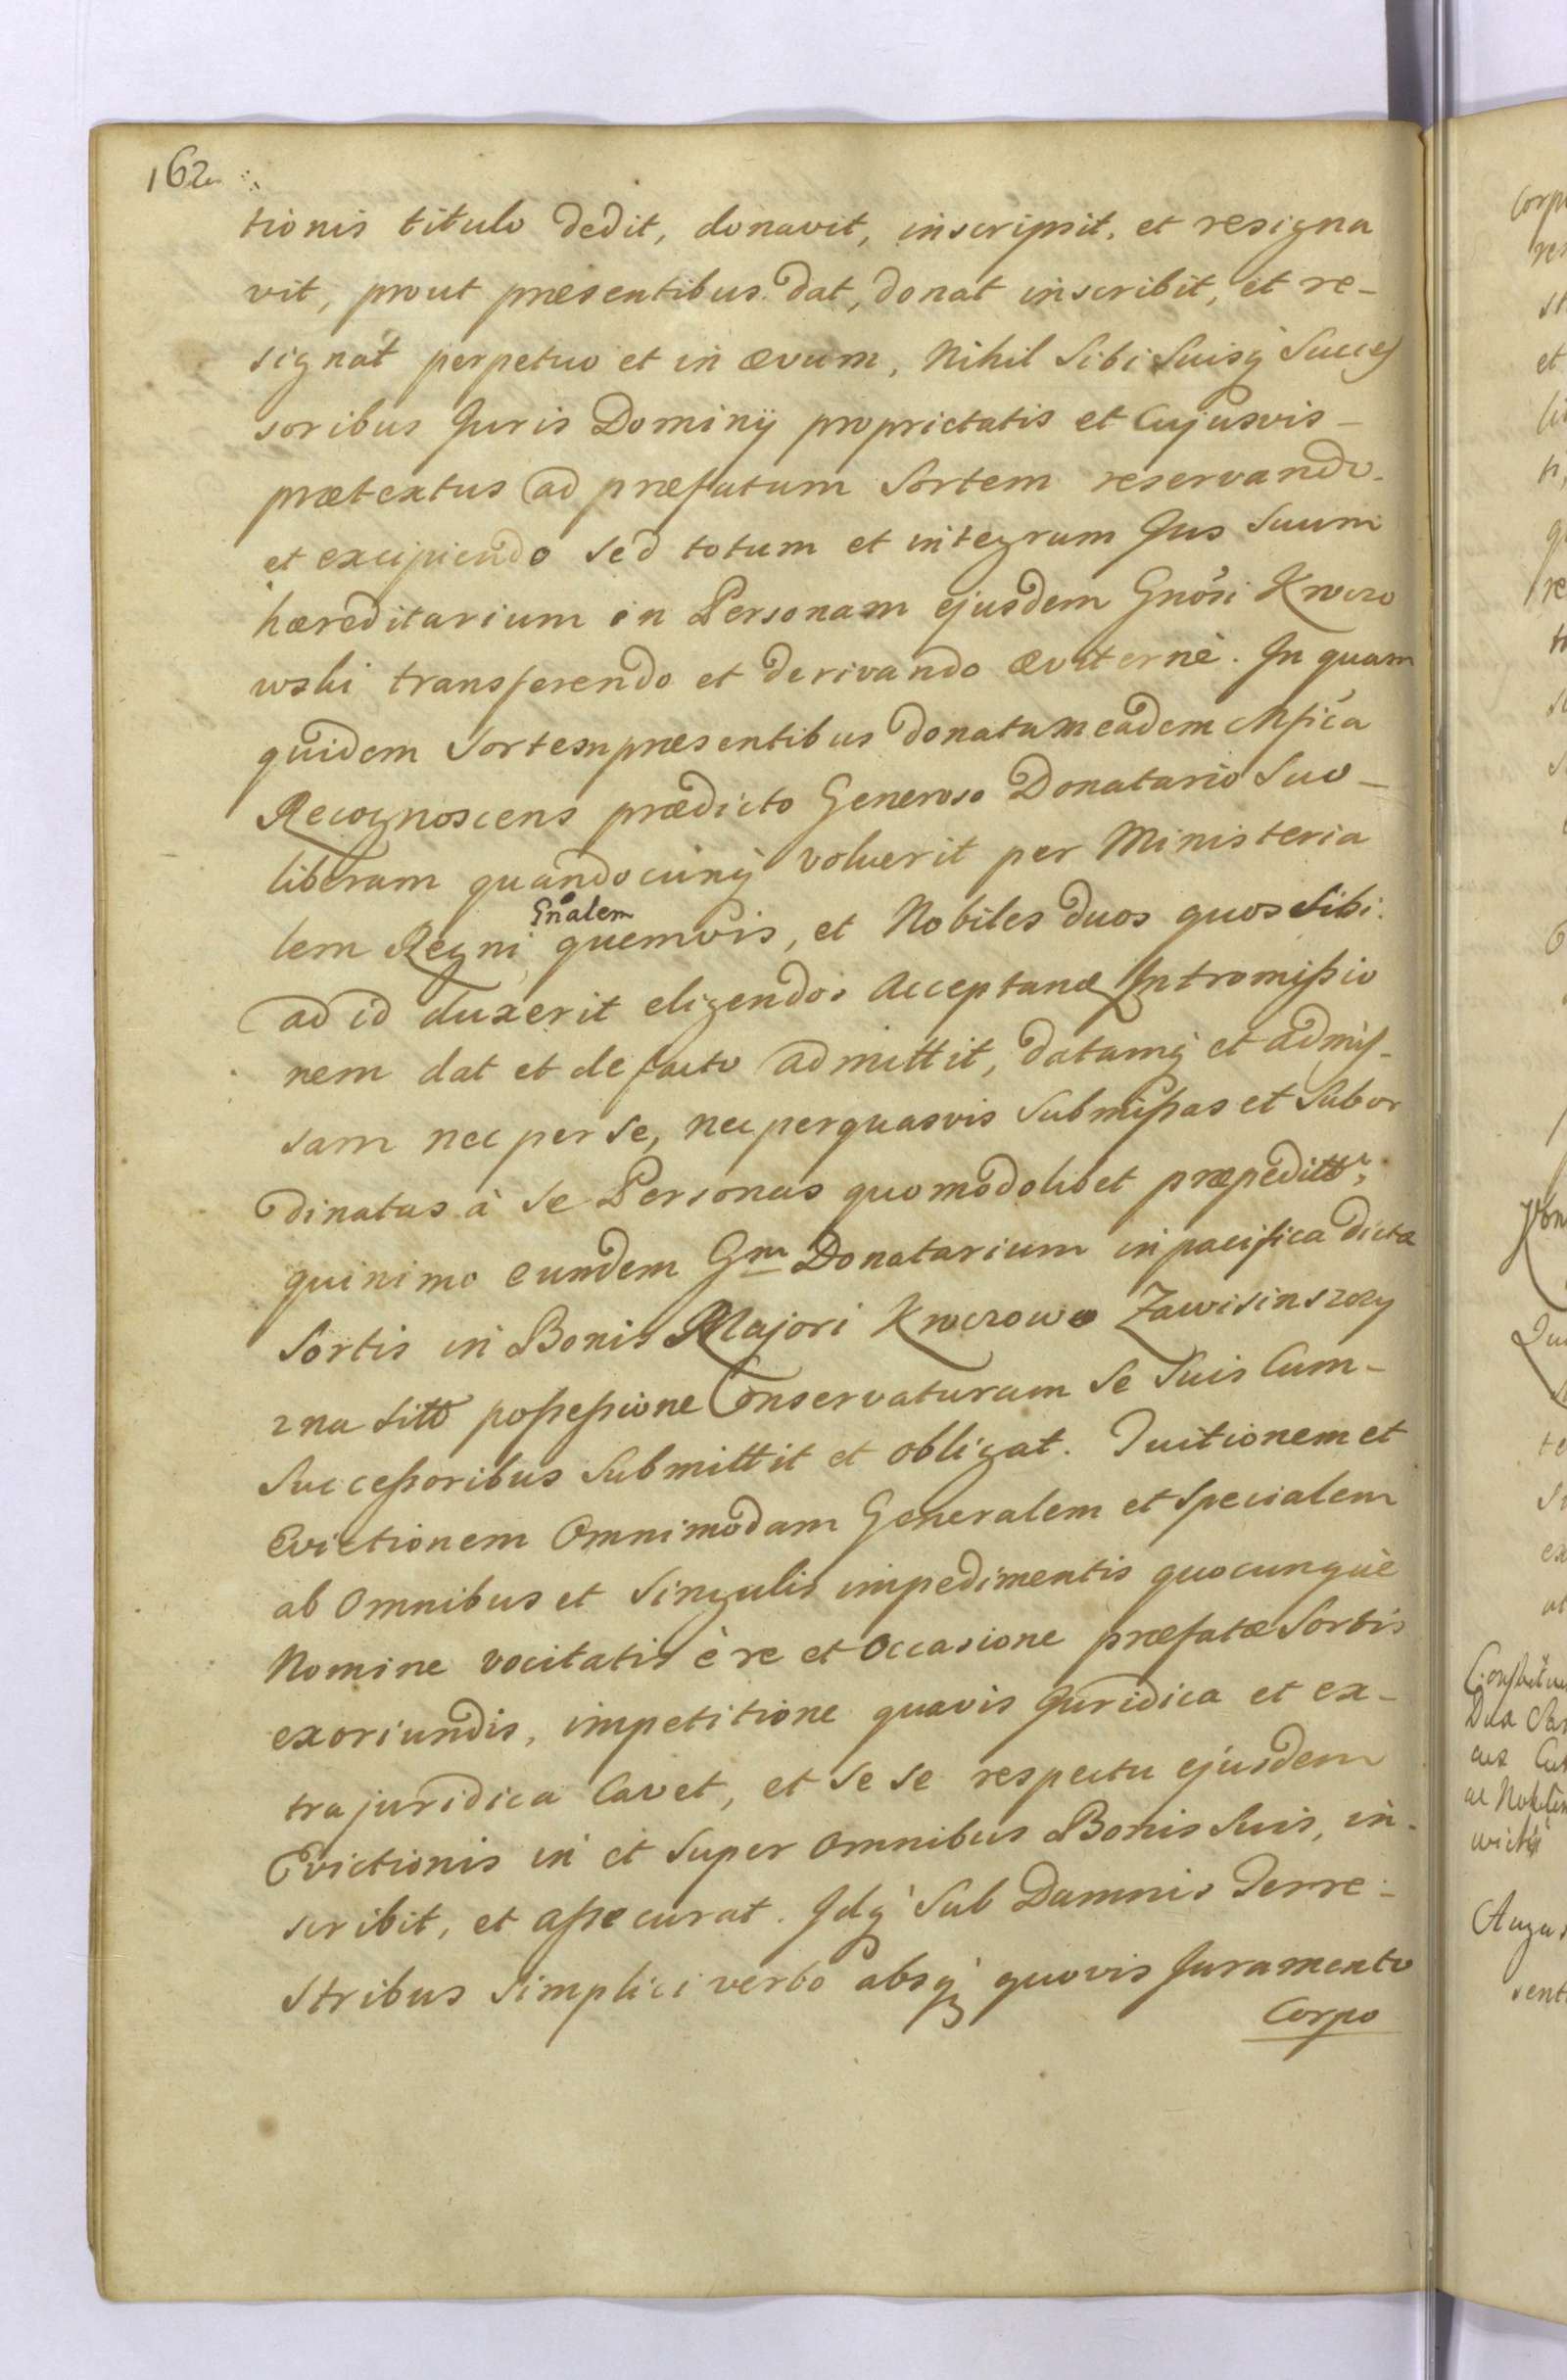 162
tionis titulo dedit, donavit, inscripsit, et resigna
vit, prout præsentibus dat, donat inscribit, et re-
signat perpetuo et in ævum, Nihil Sibi Suisq́ Succes
soribus Juris Dominij proprietatis et Cujusvis -
prætextus ad præfatam Sortem reservando.
et excipiendo Sed totum et integrum Jus Suum
hæreditarium in Personam ejusdem Gnosi Kwczo
wski transferendo et derivando æviternè. In quam
quidem Sortem præsentibus donatam eadem Mfica
Recognoscens prædicto Generoso Donatario Suo -
liberam quandocunq́ voluerit per Ministeria
Gnalem
lem Regni quemvis, et Nobiles duos quos Sibi.
ad id duxerit eligendos Acceptanđ Intromißio
nem dat et de facto admittit, datamq́ et admiſ-
sam nec per Se, nec per quasvis Submißas et Subor
dinatas à Se Personas quomodolibet præpeditt,
quinimo eundem Gm Donatarium in pacifica dicta
Sortis in Bonis Majori Kwczowo Zawisinszczy
zna sitt poßeßione Conservaturam Se Suis Cum-
Succeßoribus Submittit et obligat. Tuitionem et
Evictionem Omnimodam Generalem et Specialem
ab Omnibus et Singulis impedimentis quocunquè
Nomine vocitatis è re et Occasione præfatæ Sortis
exoriundis, impetitione quavis Juridica et ex-
tra juridica Cavet, et Se se respectu ejusdem
Evictionis in et Super omnibus Bonis Suis, in-
scribit, et aßecurat. Idq́ Sub Damnis Terre-
stribus Simplici verbo absq́ quovis Juramento
Corpo